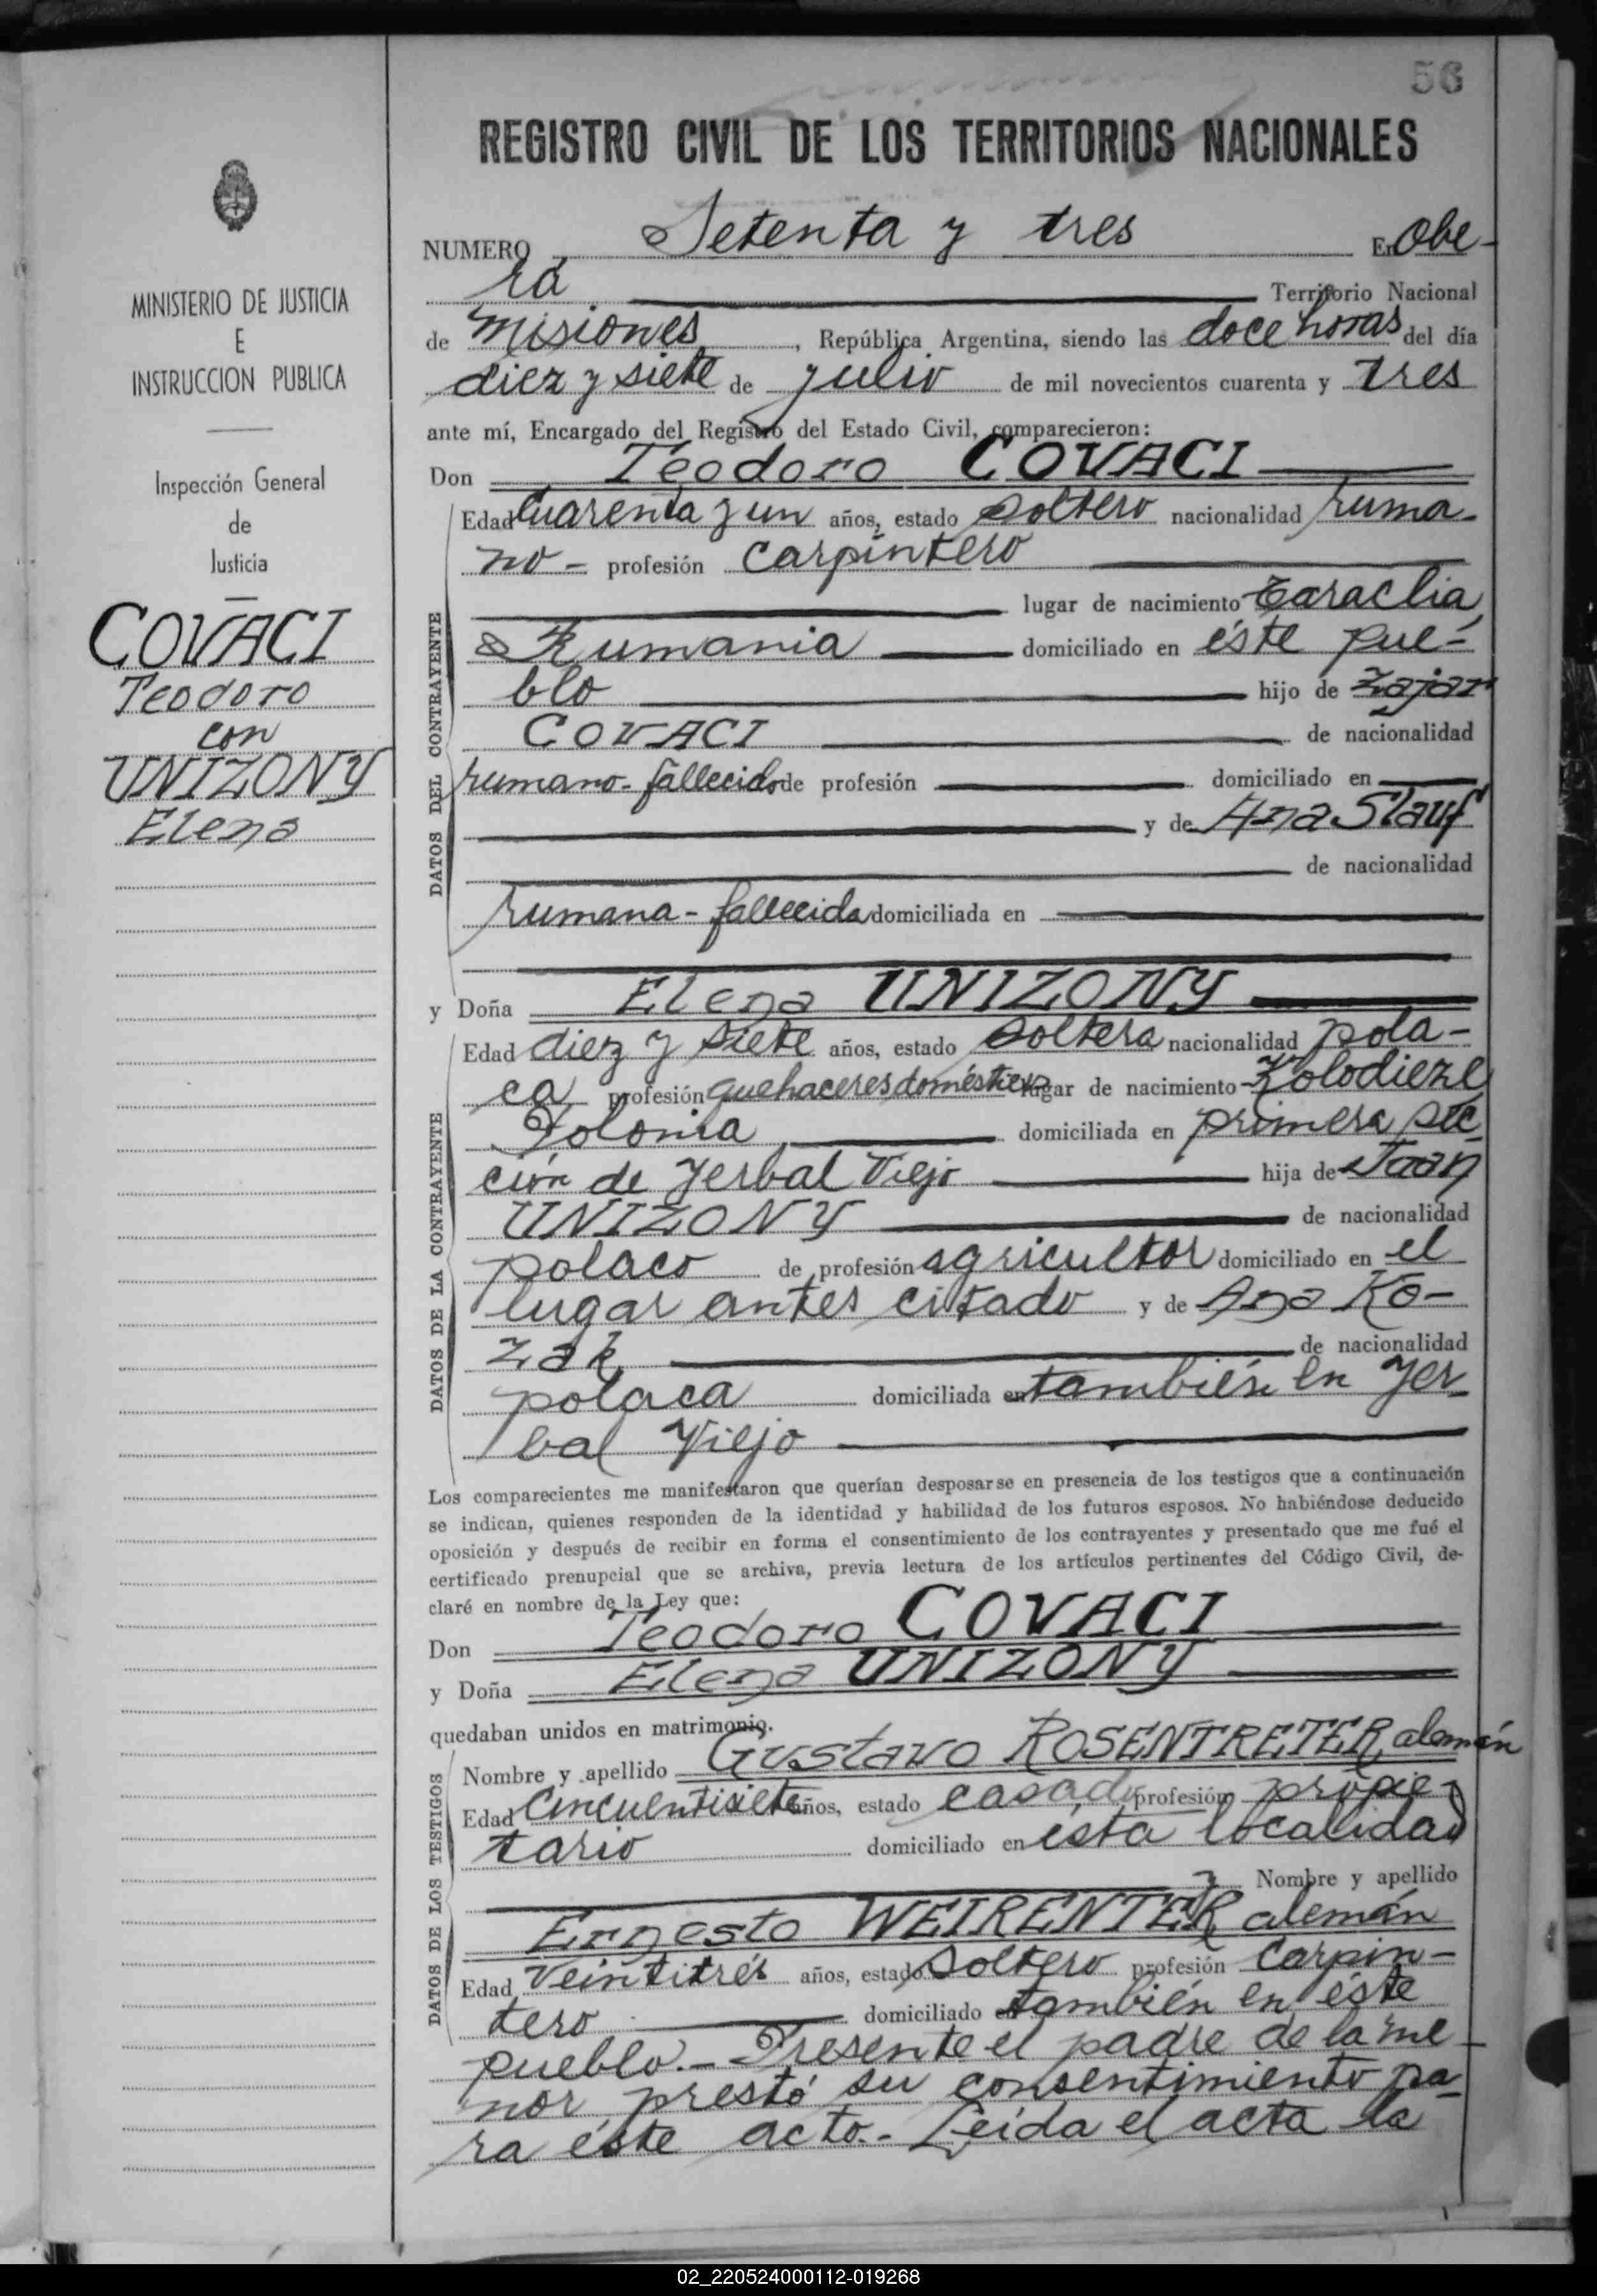 56
REGISTRO CIVIL DE LOS TERRITORIOS NACIONALES
NUMERO Setenta y tres En Obe-
rá Territorio Nacional
de Misiones, República Argentina, siendo las doce horas del día
diez y siete de julio de mil novecientos cuarenta y tres
ante mí, Encargado del Registro del Estado Civil, comparecieron:
Don Teodoro COVACI
Edad Cuarenta y un años, estado soltero nacionalidad ruma-
no- profesión carpintero
lugar de nacimiento Caraclia
Rumania domiciliado en éste pue-
blo hijo de Zajar
COVACI de nacionalidad
rumano- fallecido de profesión domiciliado en
y de Ana Slauf
de nacionalidad
rumana- fallecida domiciliada en
y Doña Elena UNIZONY
Edad diez y siete años, estado soltera nacionalidad pola-
ca profesión quehaceres domésticos lugar de nacimiento Kolodieze
Polonia domiciliada en primera sec-
ción de Yerbal Viejo hija de Juan
UNIZONY de nacionalidad
polaco de profesión agricultor domiciliado en el
lugar antes citado y de Ana Ko-
zak de nacionalidad
polaca domiciliada en también en Yer-
bal Viejo
Los comparecientes me manifestaron que querían desposarse en presencia de los testigos que a continuación
se indican, quienes responden de la identidad y habilidad de los futuros esposos. No habiéndose deducido
oposición y después de recibir en forma el consentimiento de los contrayentes y presentado que me fué el
certificado prenupcial que se archiva, previa lectura de los artículos pertinentes del Código Civil, de-
claré en nombre de la Ley que:
Don Teodoro COVACI
y Doña Elena UNIZONY
quedaban unidos en matrimonio.
Nombre y apellido Gustavo ROSENTRETER alemán
Edad Cincuentisiete años, estado casado profesión propie-
tario domiciliado en esta localidad
y Nombre y apellido
Ernesto WEIRENTER alemán
Edad Veintitrés años, estado soltero profesión Carpin-
tero domiciliado en también en éste
pueblo.- Presente el padre de la me-
nor prestó su consentimiento pa-
ra éste acto.- Leída el acta la
DATOS DEL CONTRAYENTE
DATOS DE LA CONTRAYENTE
DATOS DE LOS TESTIGOS
MINISTERIO DE JUSTICIA
E
INSTRUCCION PUBLICA
Inspección General
de
Justicia
COVACI
Teodoro
con
UNIZONY
Elena
02_220524000112-019268